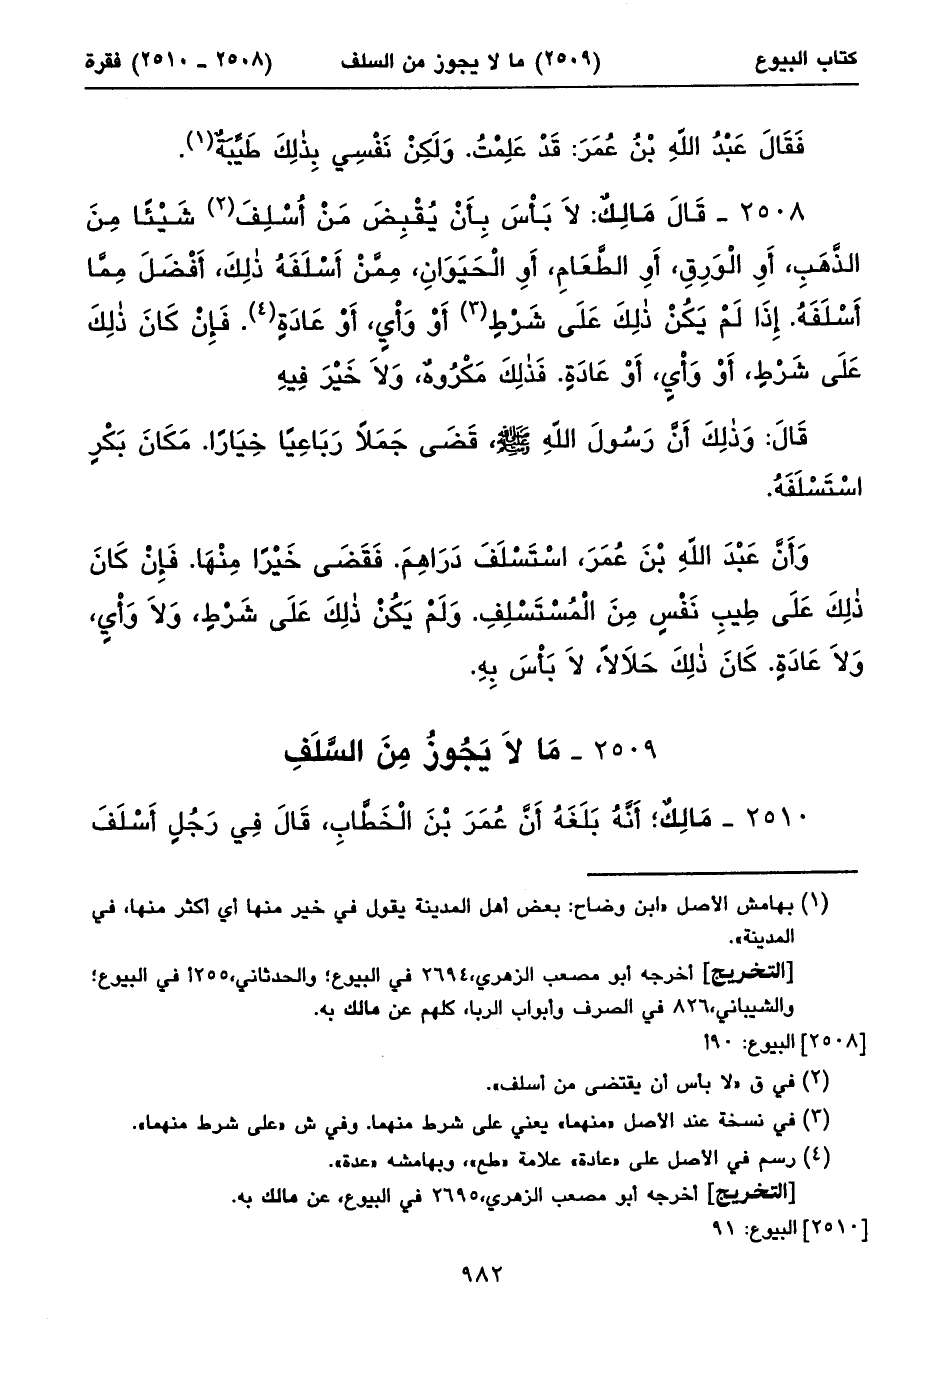 كتاب البيوع (٢٥٠٩) ما لا يجوز من السلف (٢٥٠٨ ـ ٢٥١٠) فقرة
فَقَالَ عَبْدُ اللَّهِ بْنُ عُمَرَ: قَدْ عَلِمْتُ. وَلَكِنْ نَفْسِي بِذٰلِكَ طَيِّبَةٌ(١).
٢٥٠٨ ـ قَالَ مَالِكٌ: لاَ بَأْسَ بِأَنْ يُقْبِضَ مَنْ أُسْلِفَ(٢) شَيْئًا مِنَ
الذَّهَبِ، أَوِ الْوَرِقِ، أَوِ الطَّعَامِ، أَوِ الْحَيَوَانِ، مِمَّنْ أَسْلَفَهُ ذٰلِكَ، أَفْضَلَ مِمَّا
أَسْلَفَهُ. إِذَا لَمْ يَكُنْ ذٰلِكَ عَلَى شَرْطٍ(٣) أَوْ وَأْيٍ، أَوْ عَادَةٍ(٤). فَإِنْ كَانَ ذٰلِكَ
عَلَى شَرْطٍ، أَوْ وَأْيٍ، أَوْ عَادَةٍ. فَذٰلِكَ مَكْرُوهٌ، وَلاَ خَيْرَ فِيهِ
قَالَ: وَذٰلِكَ أَنَّ رَسُولَ اللَّهِ ﷺ، قَضَى جَمَلاً رَبَاعِيًا خِيَارًا. مَكَانَ بَكْرٍ
اسْتَسْلَفَهُ.
وَأَنَّ عَبْدَ اللَّهِ بْنَ عُمَرَ، اسْتَسْلَفَ دَرَاهِمَ. فَقَضَى خَيْرًا مِنْهَا. فَإِنْ كَانَ
ذٰلِكَ عَلَى طِيبِ نَفْسٍ مِنَ الْمُسْتَسْلِفِ. وَلَمْ يَكُنْ ذٰلِكَ عَلَى شَرْطٍ، وَلاَ وَأْيٍ،
وَلاَ عَادَةٍ. كَانَ ذٰلِكَ حَلَالاً، لاَ بَأْسَ بِهِ.
٢٥٠٩ ـ مَا لاَ يَجُوزُ مِنَ السَّلَفِ
٢٥١٠ ـ مَالِكٌ؛ أَنَّهُ بَلَغَهُ أَنَّ عُمَرَ بْنَ الْخَطَّابِ، قَالَ فِي رَجُلٍ أَسْلَفَ
(١) بهامش الأصل «ابن وضاح: بعض أهل المدينة يقول في خير منها أي أكثر منها، في
المدينة».
[التخريج] أخرجه أبو مصعب الزهري،٢٦٩٤ في البيوع؛ والحدثاني،٢٥٥أ في البيوع؛
والشيباني،٨٢٦ في الصرف وأبواب الربا، كلهم عن مالك به.
[٢٥٠٨] البيوع: ٩٠أ
(٢) في ق «لا بأس أن يقتضى من أسلف».
(٣) في نسخة عند الأصل «منهما» يعني على شرط منهما. وفي ش «على شرط منهما».
(٤) رسم في الأصل على «عادة» علامة «طع»، وبهامشه «عدة».
[التخريج] أخرجه أبو مصعب الزهري،٢٦٩٥ في البيوع، عن مالك به.
[٢٥١٠] البيوع: ٩١
٩٨٢